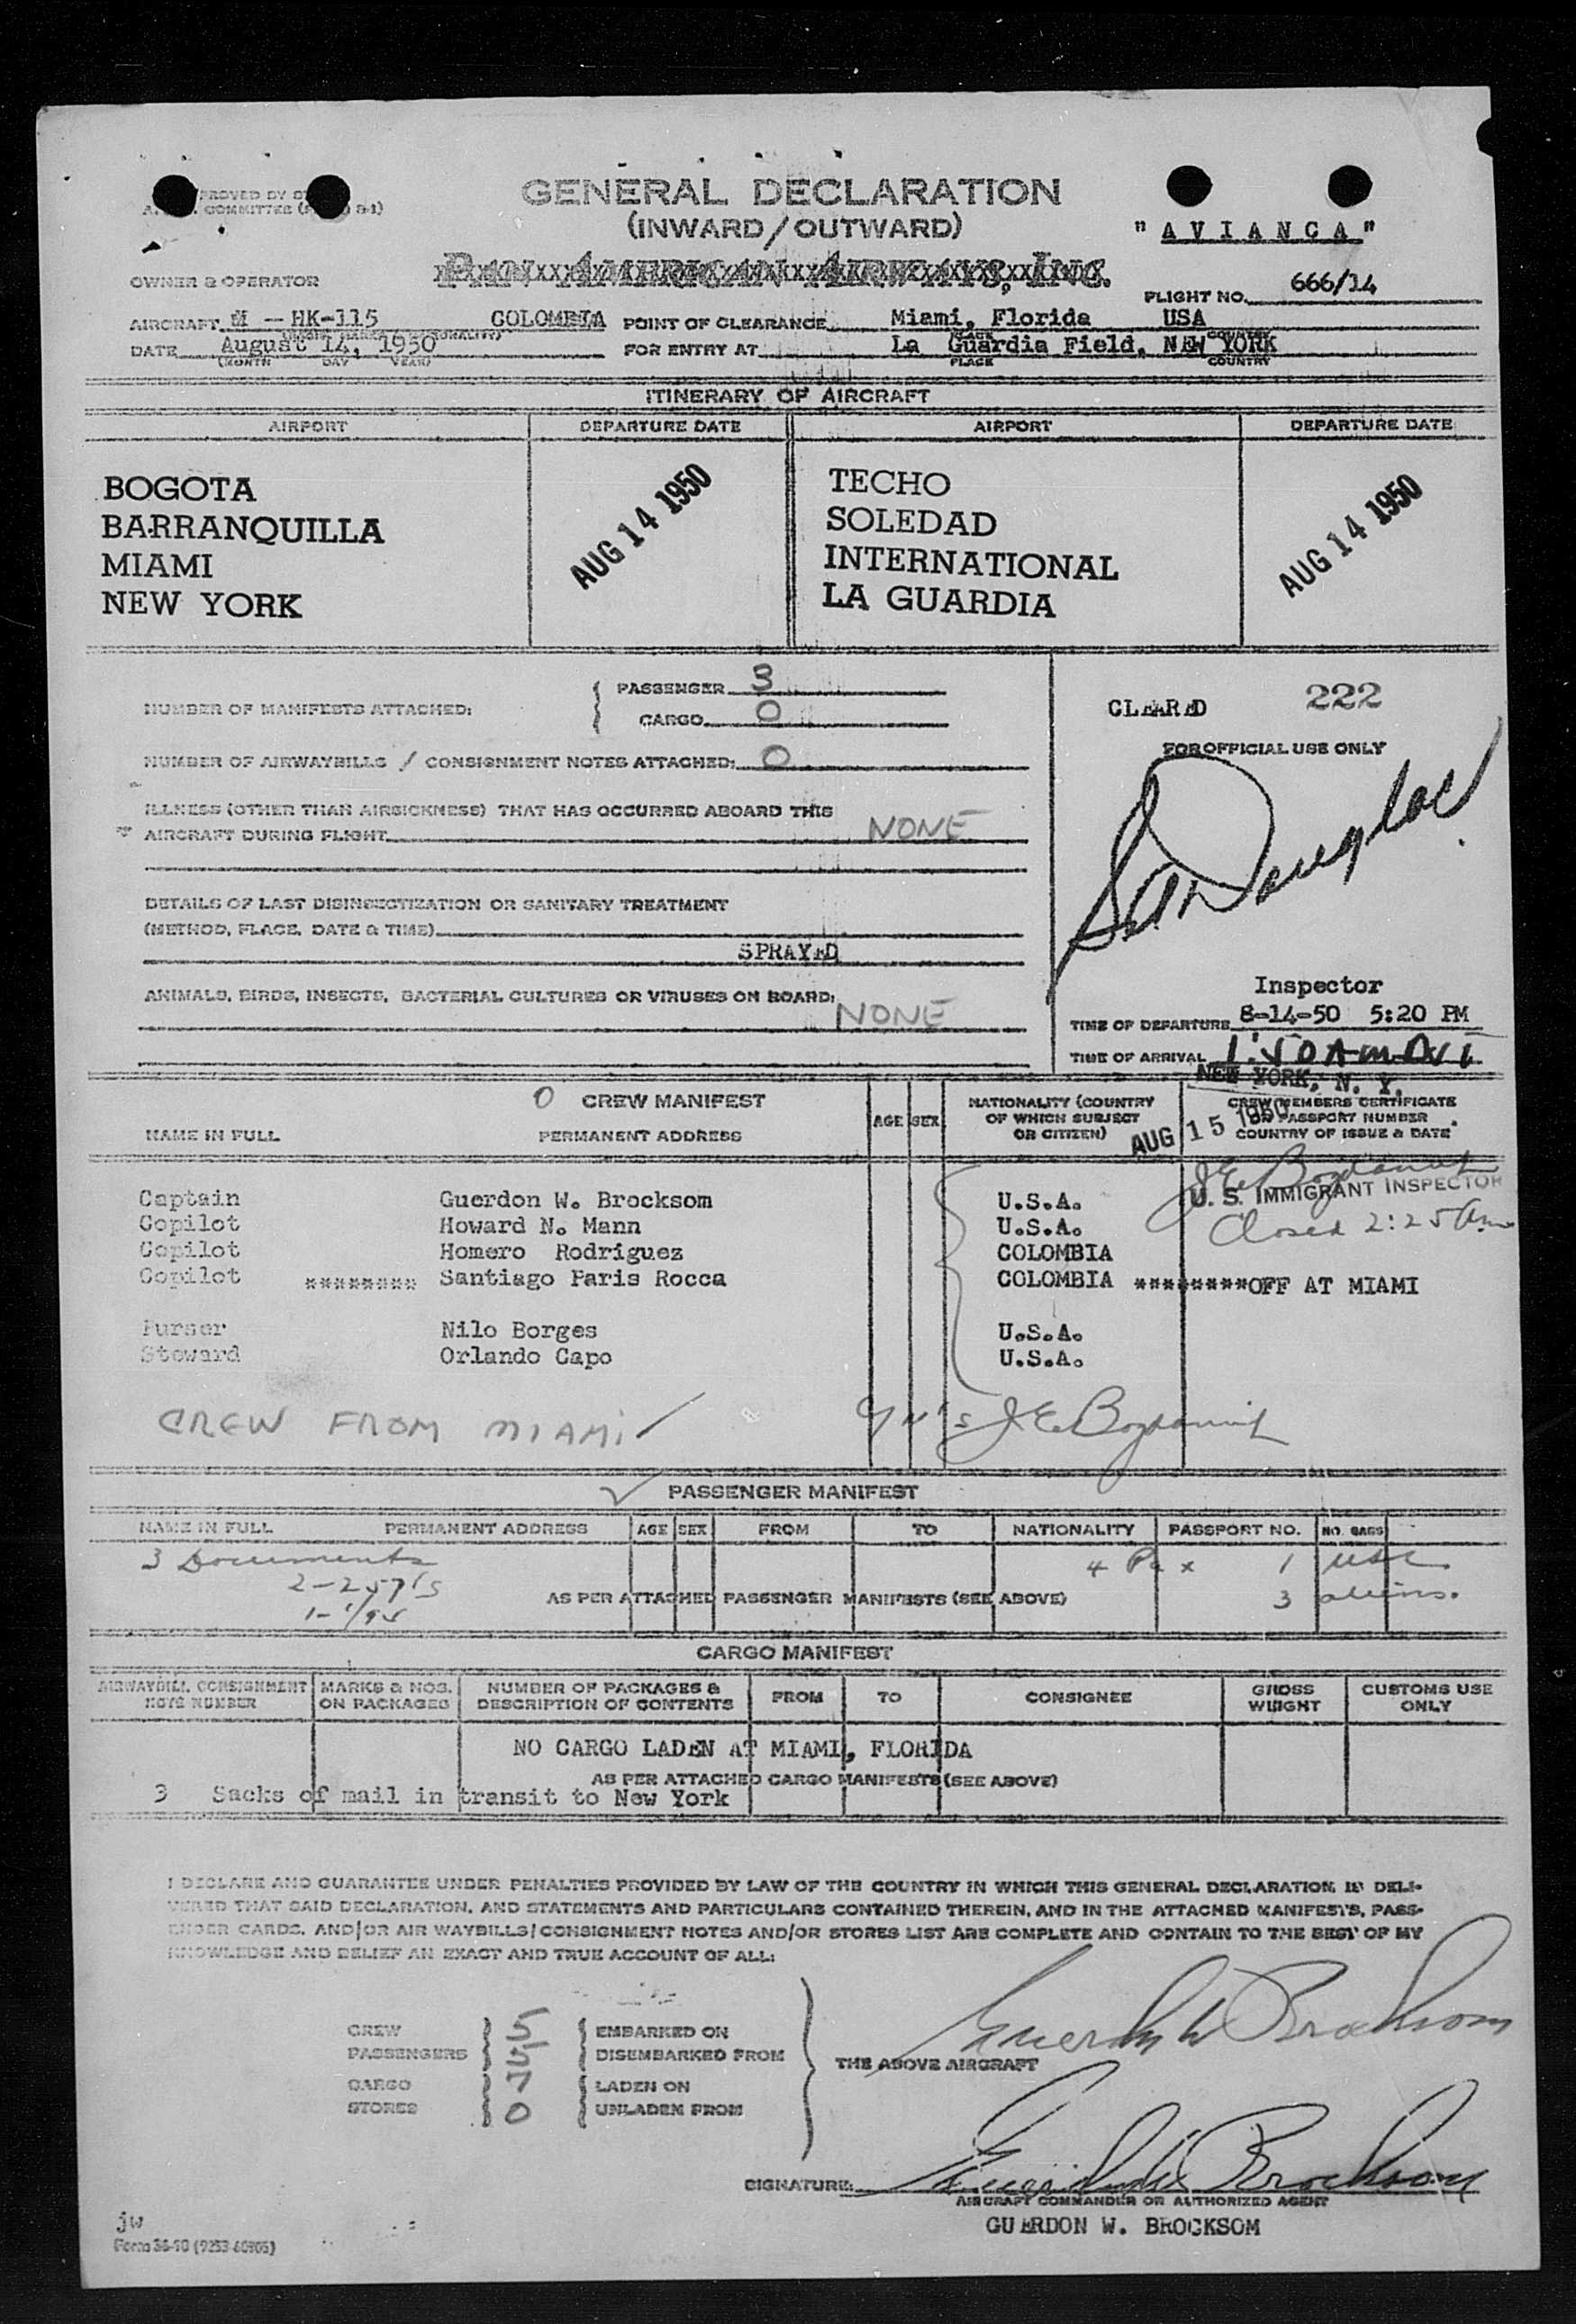 GENERAL DECLARATION
(INWARD/OUTWARD)
" A V I A N C A "
OWNER & OPERATOR
PAN AMERICAN AIRWAYS, INC.
FLIGHT NO. 666/14
AIRCRAFT M - HK-115 COLOMBIA POINT OF CLEARANCE Miami, Florida USA
DATE August 14, 1950 FOR ENTRY AT La Guardia Field, NEW YORK
(MONTH DAY YEAR) PLACE COUNTRY
ITINERARY OF AIRCRAFT
AIRPORT DEPARTURE DATE AIRPORT DEPARTURE DATE
BOGOTA TECHO
BARRANQUILLA SOLEDAD
MIAMI INTERNATIONAL
NEW YORK LA GUARDIA
AUG 14 1950 AUG 14 1950
NUMBER OF MANIFESTS ATTACHED: PASSENGER 3
CARGO 0
CLEARED 222
NUMBER OF AIRWAYBILLS / CONSIGNMENT NOTES ATTACHED: 0
FOR OFFICIAL USE ONLY
ILLNESS (OTHER THAN AIRSICKNESS) THAT HAS OCCURRED ABOARD THIS
AIRCRAFT DURING FLIGHT NONE
DETAILS OF LAST DISINSECTIZATION OR SANITARY TREATMENT
(METHOD, PLACE, DATE & TIME)
SPRAYED
ANIMALS, BIRDS, INSECTS, BACTERIAL CULTURES OR VIRUSES ON BOARD:
NONE
Inspector
TIME OF DEPARTURE 8-14-50 5:20 PM
TIME OF ARRIVAL 1:50 AM
NEW YORK, N. Y.
AUG 15 1950
0 CREW MANIFEST
NAME IN FULL PERMANENT ADDRESS AGE SEX NATIONALITY (COUNTRY OF WHICH SUBJECT OR CITIZEN) CREW MEMBERS CERTIFICATE OR PASSPORT NUMBER COUNTRY OF ISSUE & DATE
U. S. IMMIGRANT INSPECTOR
Closed 2:25 am
Captain Guerdon W. Brocksom U.S.A.
Copilot Howard N. Mann U.S.A.
Copilot Homero Rodriguez COLOMBIA
Copilot ******** Santiago Faris Rocca COLOMBIA ********OFF AT MIAMI
Purser Nilo Borges U.S.A.
Steward Orlando Capo U.S.A.
CREW FROM MIAMI
PASSENGER MANIFEST
NAME IN FULL PERMANENT ADDRESS AGE SEX FROM TO NATIONALITY PASSPORT NO. NO. BAGS
3 Documents 4 Pax 1 USC
2-257's 3 aliens.
AS PER ATTACHED PASSENGER MANIFESTS (SEE ABOVE)
CARGO MANIFEST
AIRWAYBILL CONSIGNMENT NOTE NUMBER MARKS & NOS. ON PACKAGES NUMBER OF PACKAGES & DESCRIPTION OF CONTENTS FROM TO CONSIGNEE GROSS WEIGHT CUSTOMS USE ONLY
NO CARGO LADEN AT MIAMI, FLORIDA
AS PER ATTACHED CARGO MANIFESTS (SEE ABOVE)
3 Sacks of mail in transit to New York
I DECLARE AND GUARANTEE UNDER PENALTIES PROVIDED BY LAW OF THE COUNTRY IN WHICH THIS GENERAL DECLARATION IS DELI-
VERED THAT SAID DECLARATION, AND STATEMENTS AND PARTICULARS CONTAINED THEREIN, AND IN THE ATTACHED MANIFESTS, PASS-
ENGER CARDS, AND/OR AIR WAYBILLS/CONSIGNMENT NOTES AND/OR STORES LIST ARE COMPLETE AND CONTAIN TO THE BEST OF MY
KNOWLEDGE AND BELIEF AN EXACT AND TRUE ACCOUNT OF ALL:
CREW 5 EMBARKED ON
PASSENGERS 5 DISEMBARKED FROM
THE ABOVE AIRCRAFT
CARGO 7 LADEN ON
STORES 0 UNLADEN FROM
Guerdon W Brocksom
SIGNATURE: Guerdon W Brocksom
AIRCRAFT COMMANDER OR AUTHORIZED AGENT
GUERDON W. BROCKSOM
jw